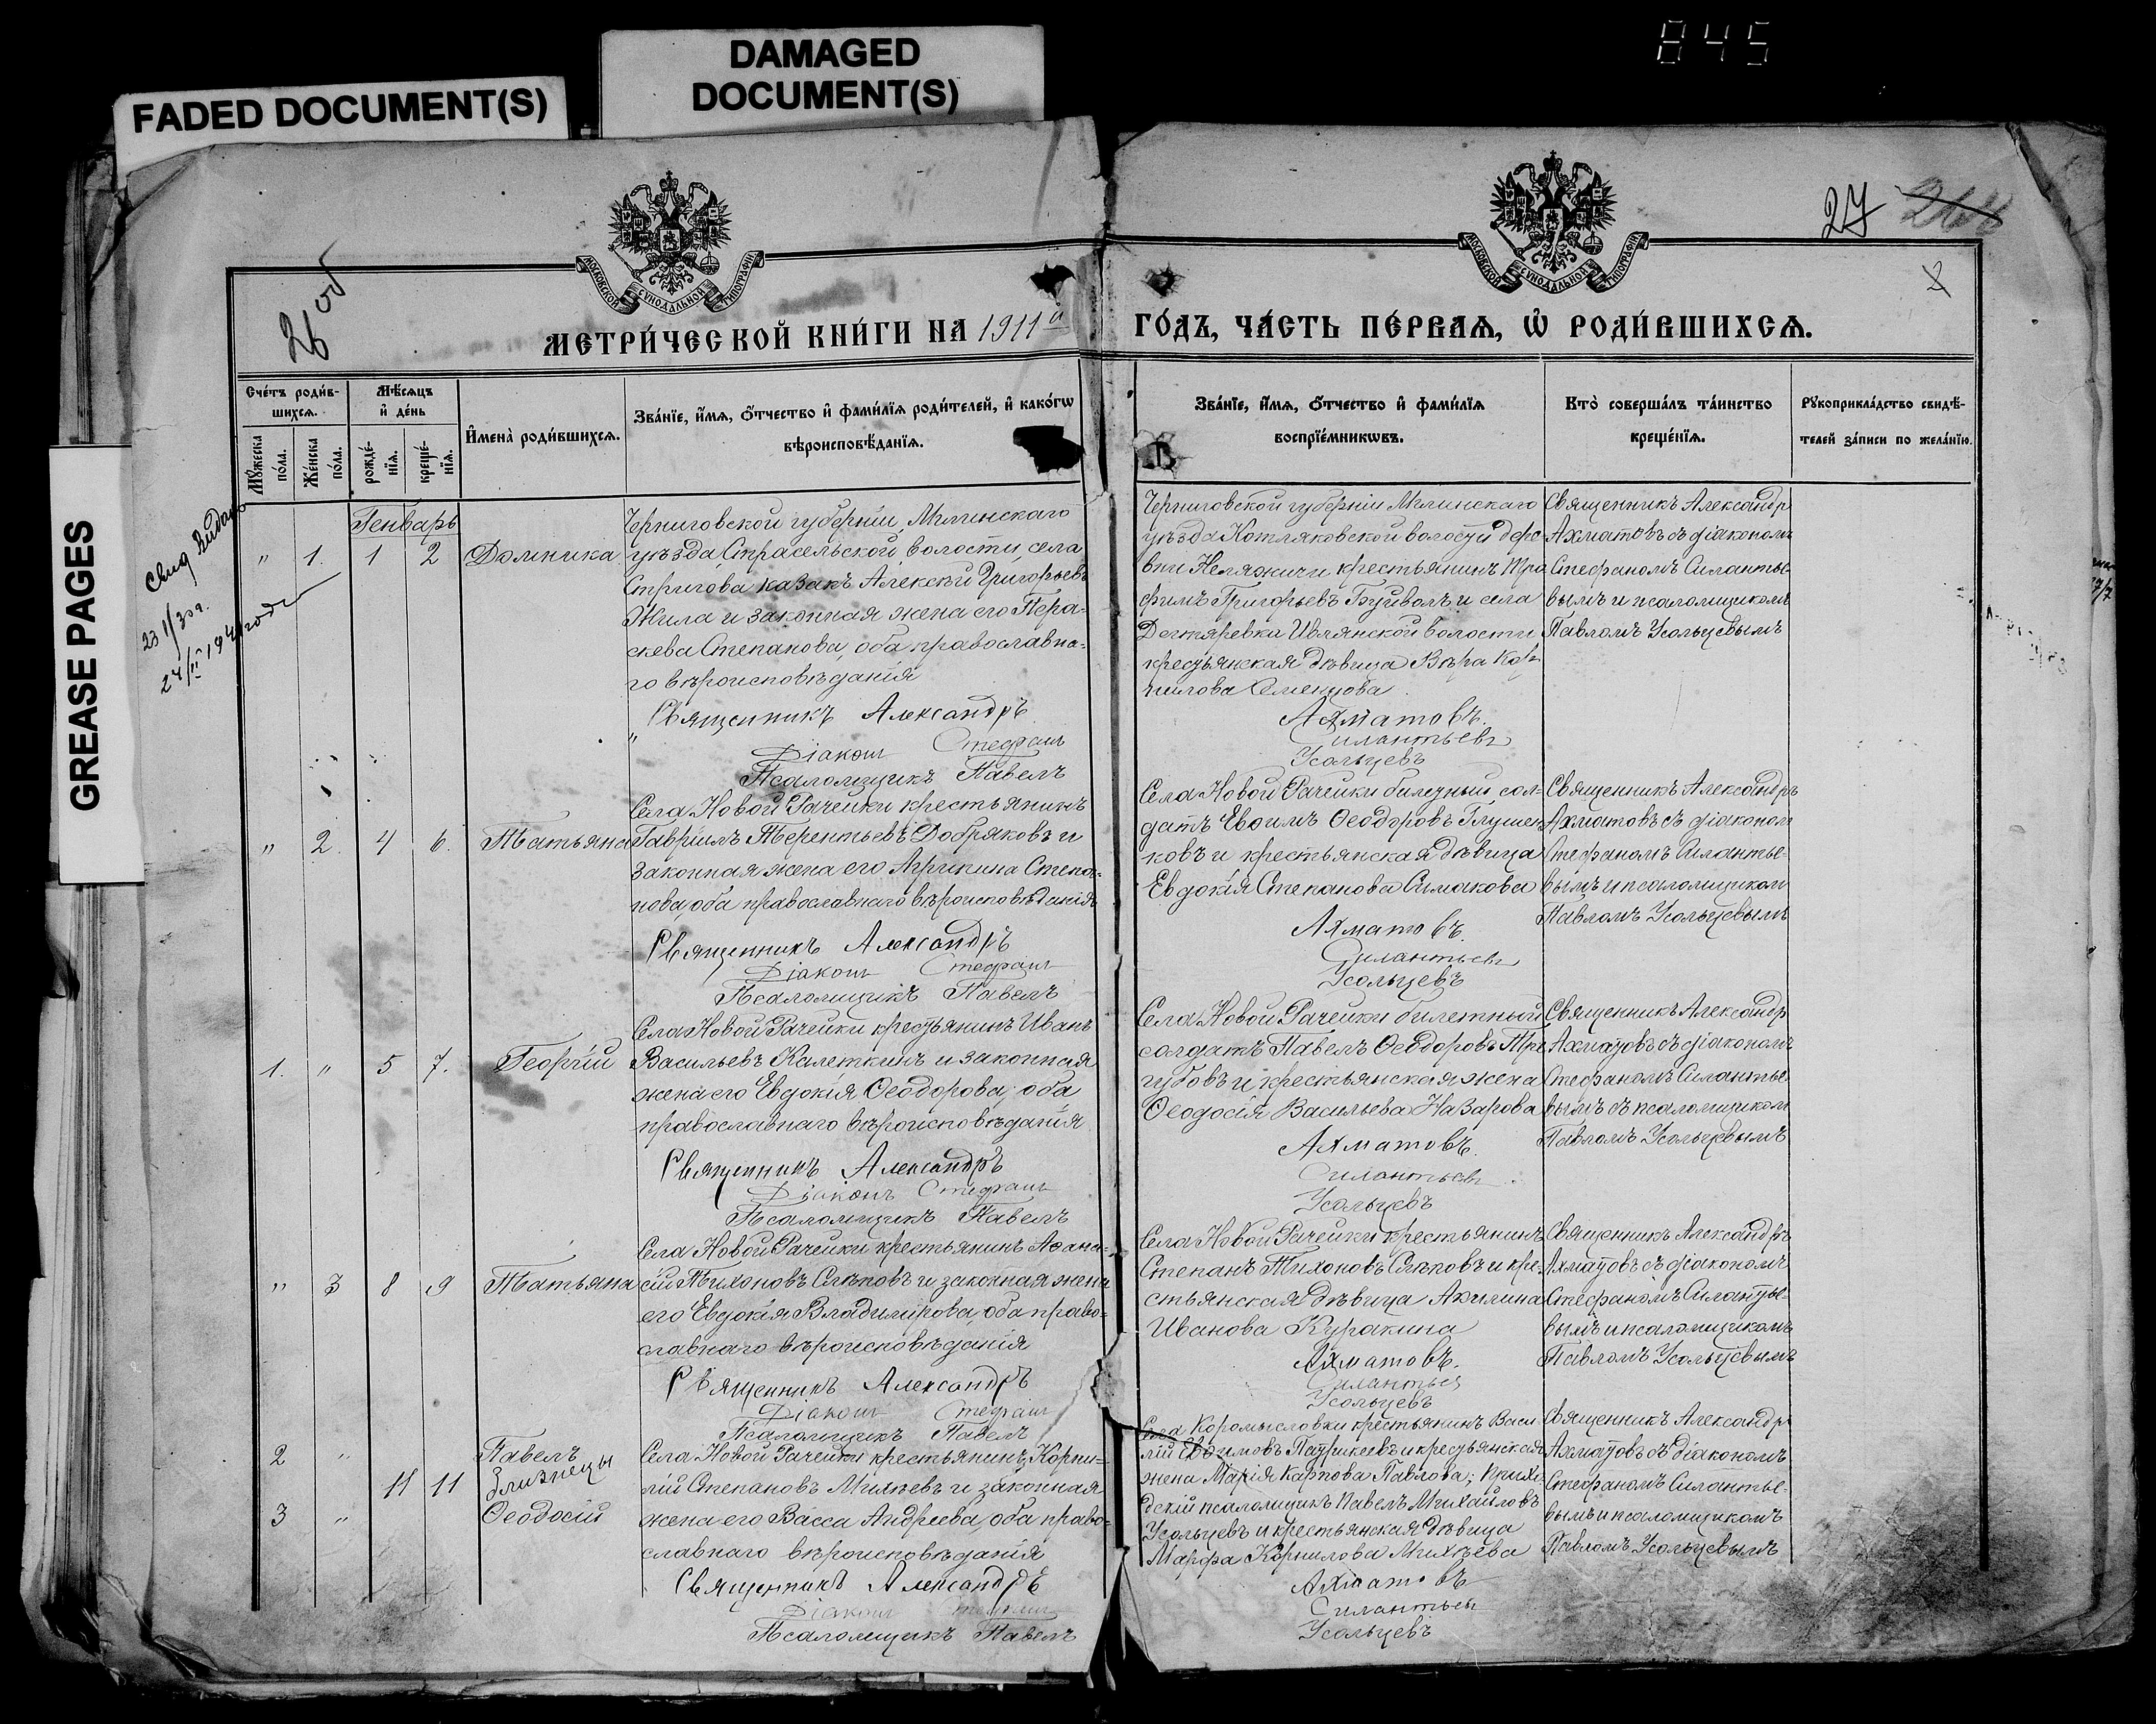 845
DAMAGED
DOCUMENT(S)
FADED DOCUMENT(S)
GREASE PAGES
27
26 об
МОСКОВСКОЙ СѴНОДАЛЬНОЙ ТИПОГРАФІИ
МОСКОВСКОЙ СѴНОДАЛЬНОЙ ТИПОГРАФІИ
МЕТРИ́ЧЕСКОЙ КНИ́ГИ НА 1911й ГО́ДЪ, ЧА́СТЬ ПЕ́РВАѦ, Ѡ҆ РОДИ́ВШИХСѦ.
Сче́тъ роди́в-
шихсѧ.
Мѣ́сѧцъ
и҆ де́нь
Мꙋ́жеска
по́ла.
Же́нска
по́ла.
рожде́-
нїѧ.
креще́-
нїѧ.
И҆мена̀ роди́вшихсѧ.
Зва́нїе, и҆́мѧ, ѻ҆́тчество и҆ фамн́лїѧ роди́телей, и҆ како́гѡ
вѣроисповѣ́данїѧ.
Зва́нїе, и҆́мѧ, ѻ҆́тчество и҆ фами́лїѧ
воспрїе́мникѡвъ.
Кто̀ соверша́лъ та́инство
креще́нїѧ.
Рꙋкоприкла́дство свидѣ́-
телей за́писи по жела́нїю.
Свид выдано
23 1/30г.
Генварь
" 1. 1 2 Домника
Черниговской губерніи, Мглинскаго
уѣзда, Страсельской волости, села
Стригова казакъ Алексѣй Григорьевъ
Жила и законная жена его Пера-
скева Степанова, оба православна-
го вѣроисповѣданія
Священникъ Александръ
Діаконъ Стефанъ
Псаломщикъ Павелъ
Черниговской губерніи Мглинскаго
уѣзда Котляковской волости дере-
вни Нелажичи крестьянинъ Тро
фимъ Григорьевъ Буйволъ и села
Дегтяревка Ивлянской волости
крестьянская дѣвица Вѣра Кор-
нилова Семенцова
Ахматовъ.
Силантьевъ
Усольцевъ
Священникъ Александр
Ахматовъ съ діакономъ
Стефаномъ Силантье-
вымъ и псаломщикомъ
Павломъ Усольцевымъ
" 2. 4 6. Татьяна
Села Новой Рачейки крестьянинъ
Гавріилъ Терентьевъ Добряковъ и
законная жена его Агрипина Степа-
нова, оба православнаго вѣроисповѣданія
Священникъ Александръ
Діаконъ Стефанъ
Псаломщикъ Павелъ
Села Новой Рачейки билетный сол-
датъ Евѳимъ Ѳеодоровъ Глушен-
ковъ и крестьянская дѣвица
Евдокія Степанова Симакова
Ахматовъ.
Силантьевъ
Усольцевъ
Священникъ Александръ
Ахматовъ съ діаконом
Стефаномъ Силантье-
вымъ и псаломщиком
Павломъ Усольцевымъ
1. " 5 7. Георгій
Села Новой Рачейки крестьянинъ Иванъ
Васильевъ Калеткинъ и законная
жена его Евдокія Ѳеодорова, оба
православнаго вѣроисповѣданія
Священникъ Александръ
Діаконъ Стефанъ
Псаломщикъ Павелъ
Села Новой Рачейки билетный
солдатъ Павелъ Ѳеодоровъ Тре
губовъ и крестьянская жена
Ѳеодосія Васильева Назарова
Ахматовъ.
Силантьевъ
Усольцевъ
Священникъ Александр
Ахматовъ съ діакономъ
Стефаномъ Силантье
вымъ съ псаломщиком
Павломъ Усольцевымъ
" 3 8 9 Татьяна
Села Новой Рачейки крестьянинъ Аѳана-
сій Тихоновъ Слѣповъ и законная жена
его Евдокія Владимірова, оба право-
славнаго вѣроисповѣданія
Священникъ Александръ
Діаконъ Стефанъ
Псаломщикъ Павелъ
Села Новой Рачейки крестьянинъ
Степанъ Тихоновъ Слѣповъ и кре-
стьянская дѣвица Акилина
Иванова Куракина
Ахматовъ.
Силантьев
Усольцевъ
Священникъ Александръ
Ахматовъ съ діакономъ
Стефаномъ Силантье-
вымъ и псаломщикомъ
Павломъ Усольцевымъ
2 " Павелъ
11 11 близнецы
3 " Ѳеодосій
Села Новой Рачейки крестьянинъ Корни-
лій Степановъ Михѣевъ и законная
жена его Васса Андреева, оба право-
славнаго вѣроисповѣданія
Священникъ Александръ
Діаконъ Стефанъ
Псаломщикъ Павелъ
Села Коромысловки крестьянинъ Васи-
лій Евѳимовъ Патрикеевъ и крестьянская
жена Марія Карпова Павлова; прихо-
дскій псаломщикъ Павелъ Михайловъ
Усольцевъ и крестьянская дѣвица
Марфа Корнилова Михѣева
Ахматовъ
Силантьевъ
Усольцевъ
Священникъ Александръ
Ахматовъ съ діакономъ
Стефаномъ Силантье-
вымъ и псаломщикомъ
Павломъ Усольцевымъ